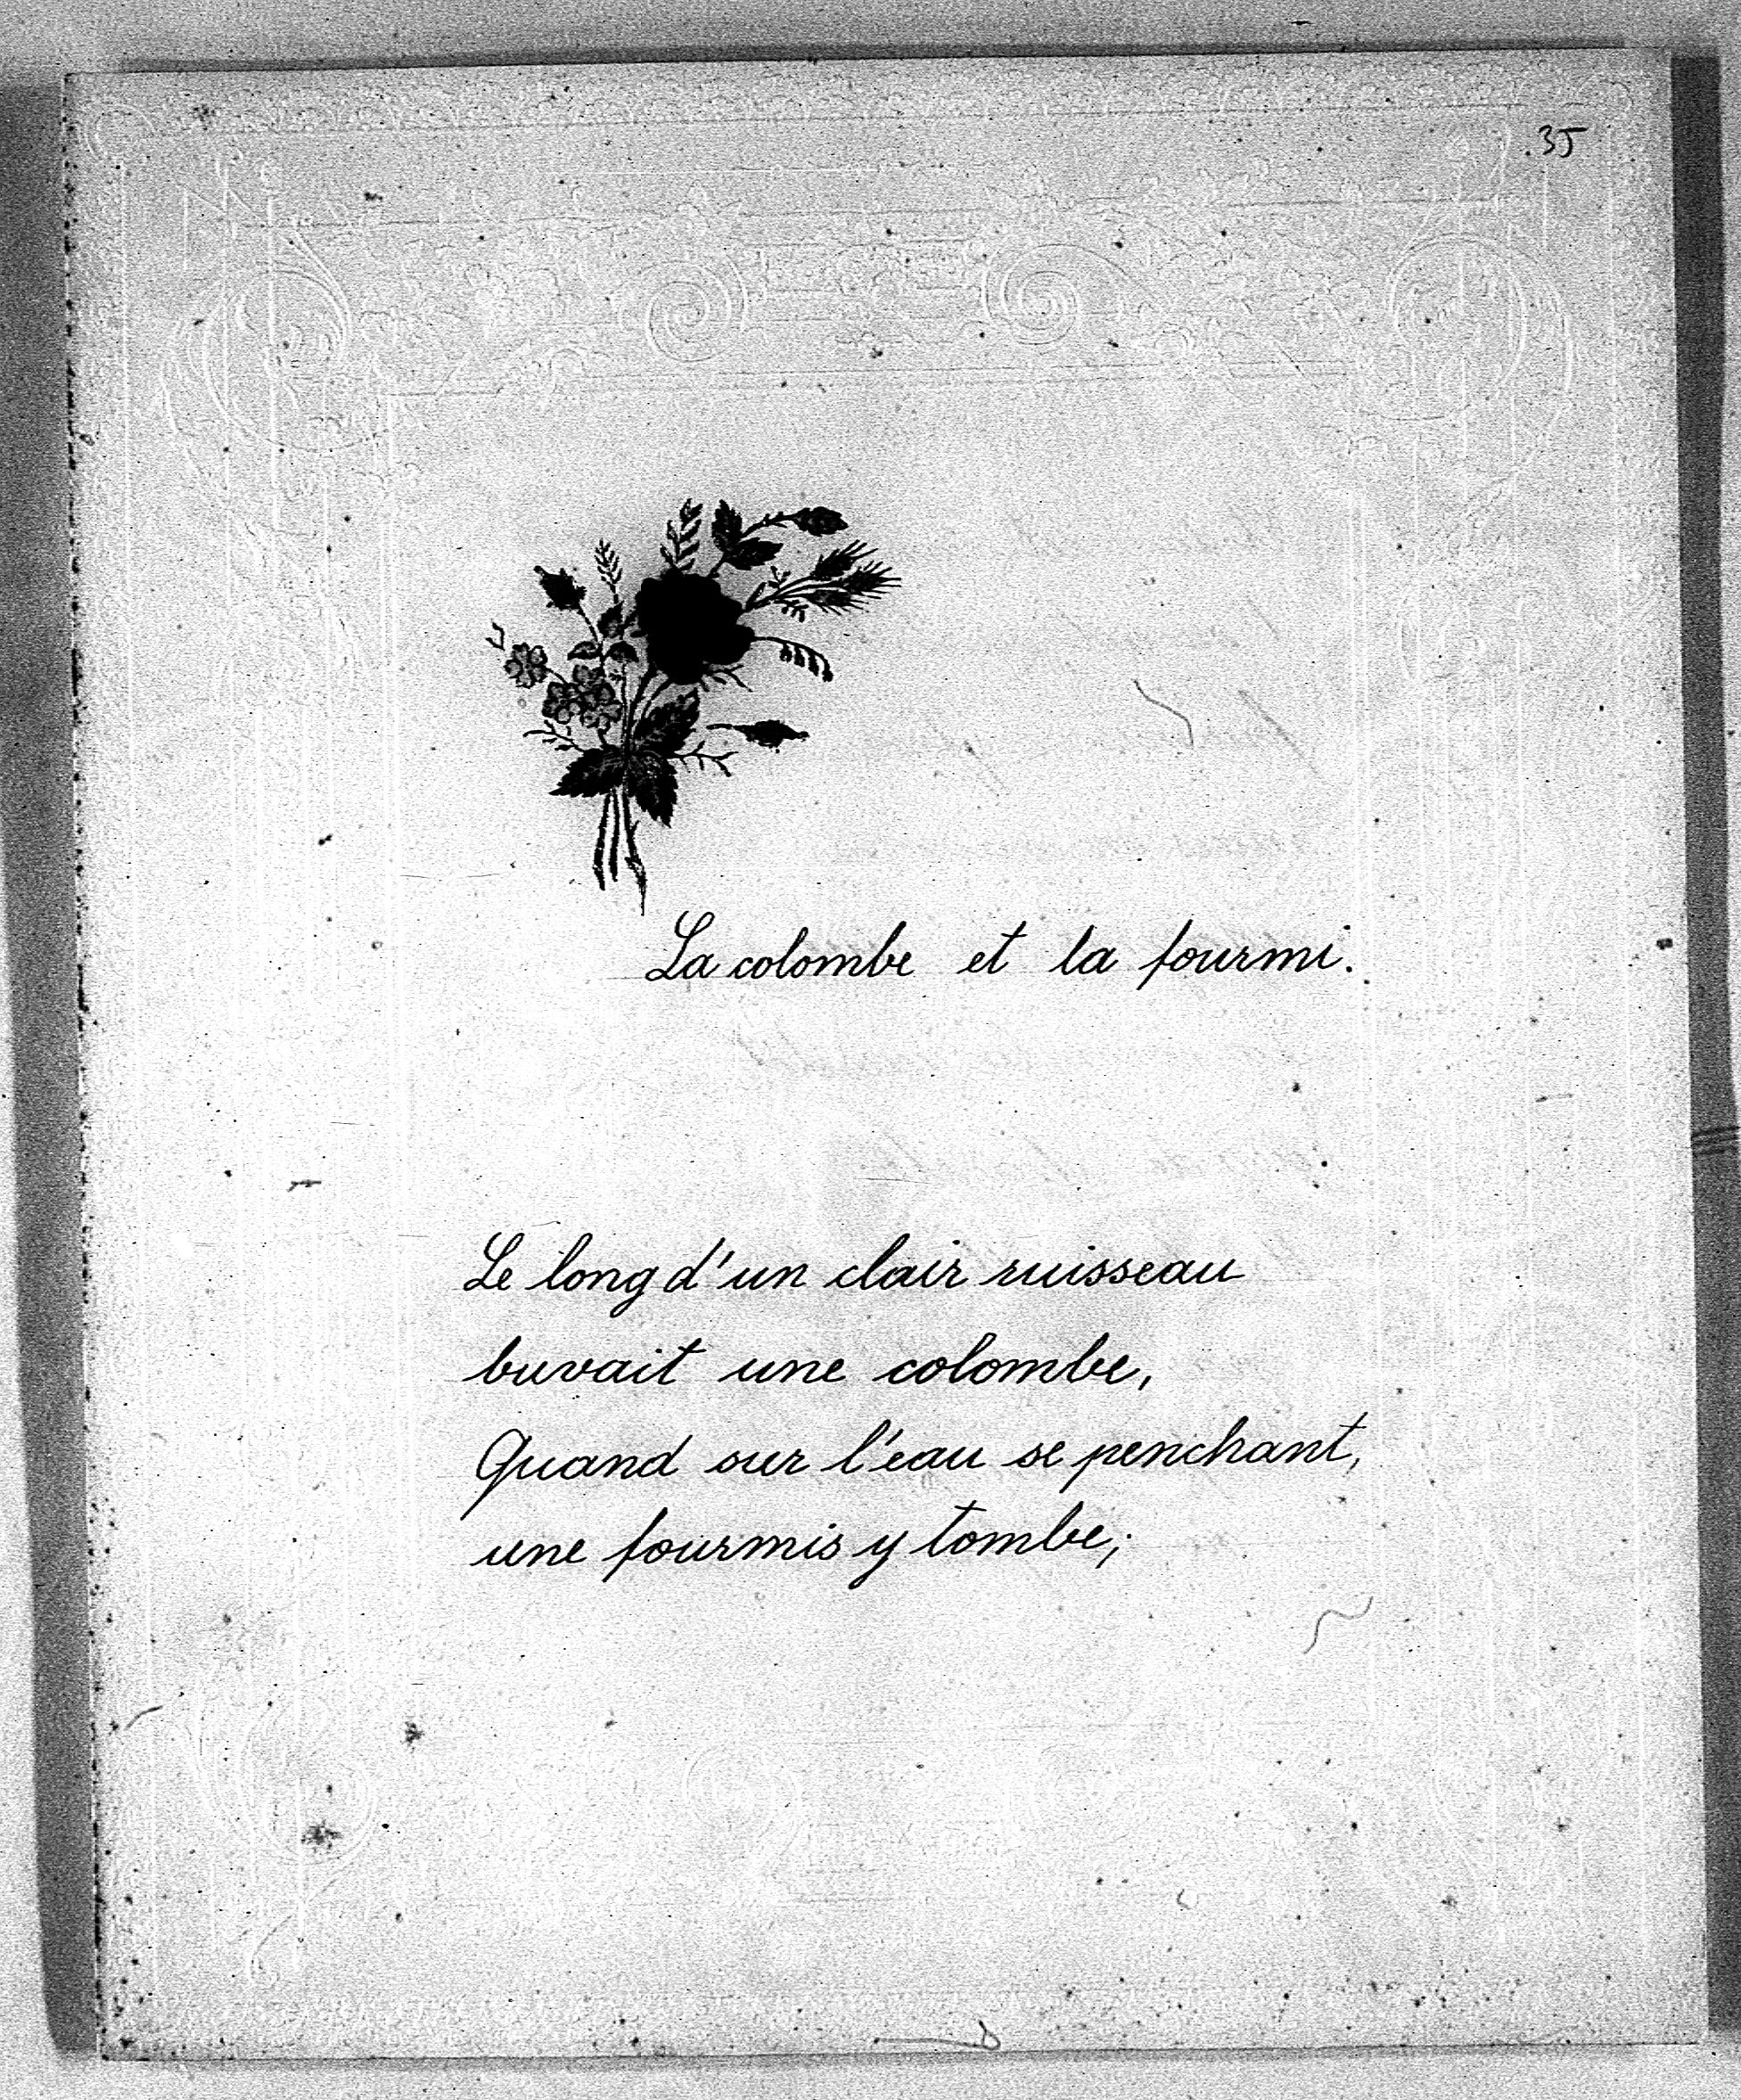 .35
La colombe et la fourmi.
Le long d'un clair ruisseau
buvait une colombe,
Quand sur l'eau se penchant,
une fourmis y tombe;